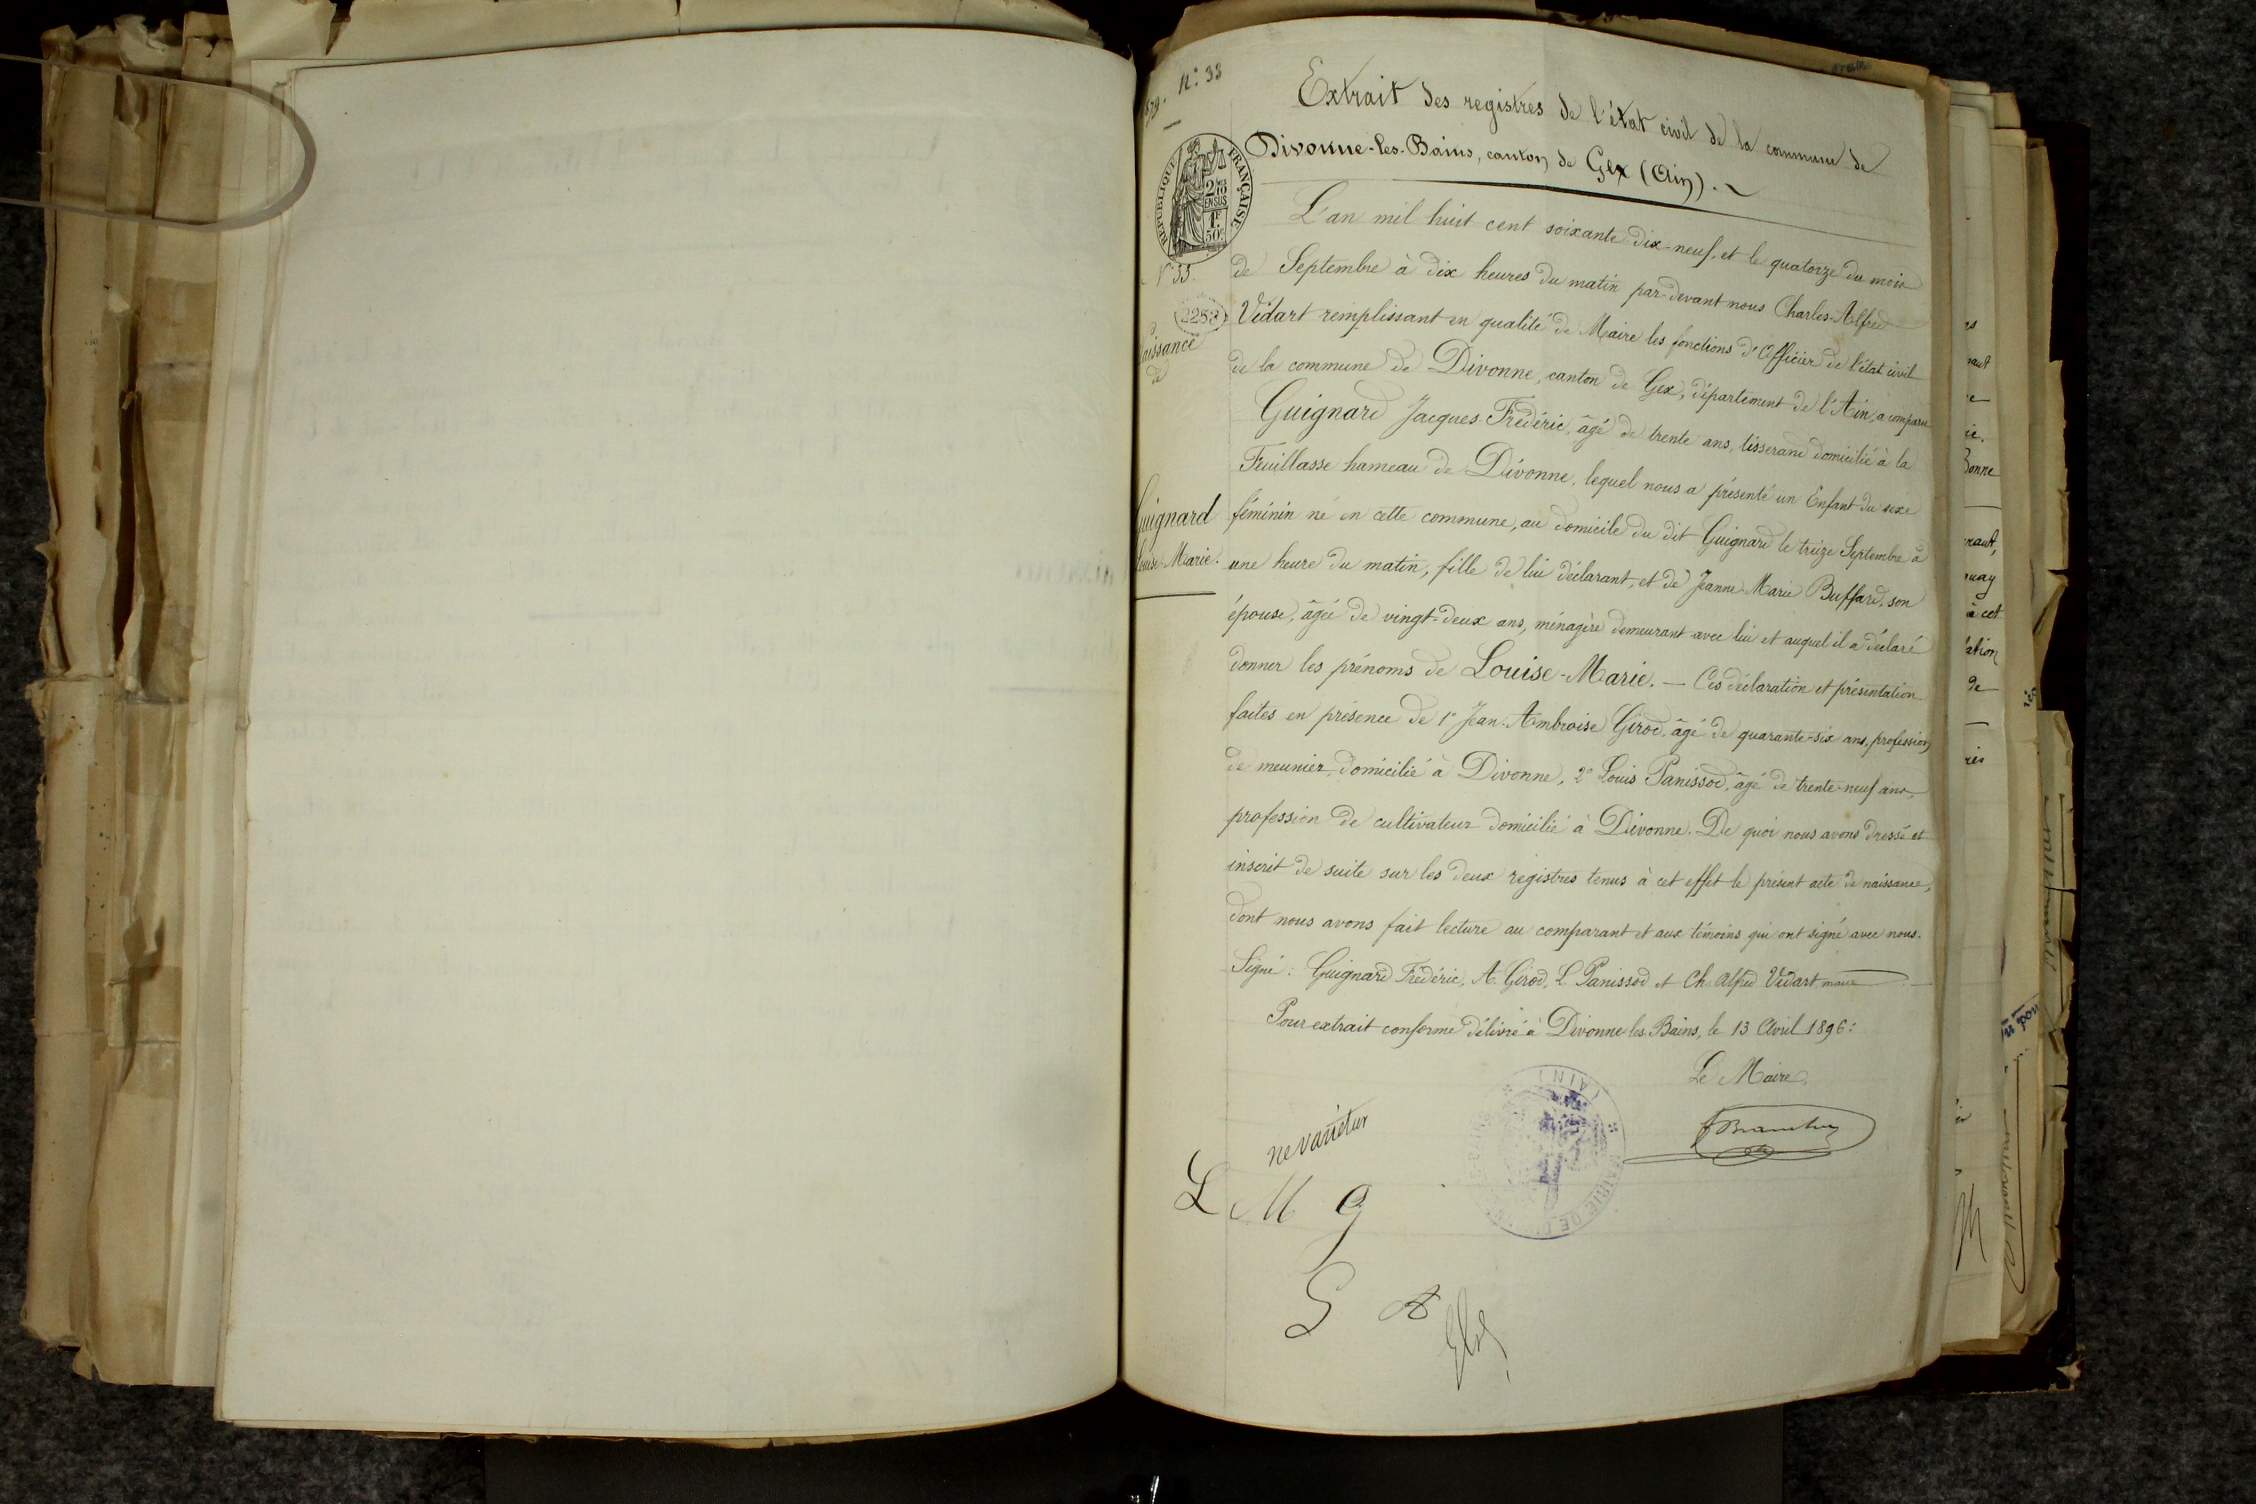 N.º 33
Extrait des registres de l'état civil de la commune de
Divonne-les-Bains, canton de Gex (Ain).
RÉPUBLIQUE FRANÇAISE
2/10 EN SUS
1F 50c
N.º 33
2258
aissance
de
Guignard
Louise-Marie.
L'an mil huit cent soixante dix-neuf, et le quatorze du mois
de Septembre à dix heures du matin par-devant nous Charles-Alfred
Vidart remplissant en qualité de Maire les fonctions d'Officier de l'état civil
de la commune de Divonne, canton de Gex, département de l'Ain, a comparu
Guignard Jacques-Frédéric, âgé de trente ans, tisserand domicilié à la
Feuillasse hameau de Divonne, lequel nous a présenté un Enfant du sexe
féminin né en cette commune, au domicile du dit Guignard le treize Septembre à
une heure du matin, fille de lui déclarant, et de Jeanne-Marie Buffard, son
épouse, âgée de vingt-deux ans, ménagère demeurant avec lui et auquel il a déclaré
donner les prénoms de Louise-Marie. — Ces déclaration et présentation
faites en présence de 1º Jean-Ambroise Girod, âgé de quarante-six ans, profession
de meunier, domicilié à Divonne, 2º Louis Panissod, âgé de trente-neuf ans,
profession de cultivateur domicilié à Divonne. De quoi nous avons dressé et
inscrit de suite sur les deux registres tenus à cet effet le présent acte de naissance,
dont nous avons fait lecture au comparant et aux témoins qui ont signé avec nous.
Signé : Guignard Frédéric, A. Girod, L. Panissod et Ch. Alfred Vidart maire
Pour extrait conforme délivré à Divonne-les-Bains, le 13 Avril 1896 :
Le Maire,
MAIRIE DE DI
(AIN)
ne varietur
L M G
G A